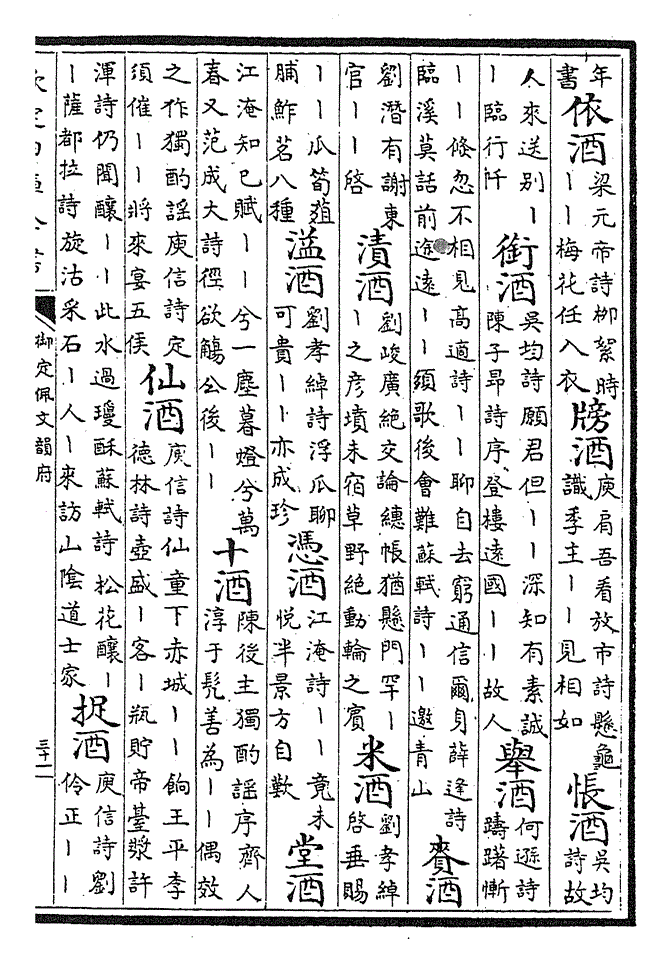 年
書
依酒
梁元帝詩栁絮時
丨丨梅花任入衣
牓酒
庾肩吾看放市詩懸龜
識季主丨丨見相如
悵酒
吳均
詩故
人來送别丨
丨臨行阡
銜酒
吳均詩願君但丨丨深知有素誠
陳子昻詩序登樓遠國丨丨故人
舉酒
何遜詩
躊躇慚
丨丨倏忽不相見高適詩丨丨聊自去窮通信爾身薛逢詩
臨溪莫話前途遠丨丨須歌後會難蘇軾詩丨丨邀青山
賚酒
劉潛有謝東
官丨丨啓
漬酒
劉峻廣絶交論繐帳猶懸門罕丨
丨之彦墳未宿草野絶動輪之賓
米酒
劉孝綽
啓垂賜
丨丨瓜筍葅
脯鮓茗八種
溢酒
劉孝綽詩浮瓜聊
可貴丨丨亦成珍
憑酒
江淹詩丨丨竟未
悦半景方自歎
堂酒
江淹知已賦丨丨兮一塵暮燈兮萬
春又范成大詩徑欲觴公後丨丨
十酒
陳後主獨酌謡序齊人
淳于髠善為丨丨偶效
之作獨酌謡庾信詩定
須催丨丨將來宴五侯
仙酒
庾信詩仙童下赤城丨丨餉王平李
德林詩壺盛丨客丨瓶貯帝臺漿許
渾詩仍聞釀丨丨此水過瓊酥蘇軾詩 松花釀丨
丨薩都拉詩旋沽采石丨人丨來訪山陰道士家
捉酒
庾信詩劉
伶正丨丨
御定佩文韻府
三十二